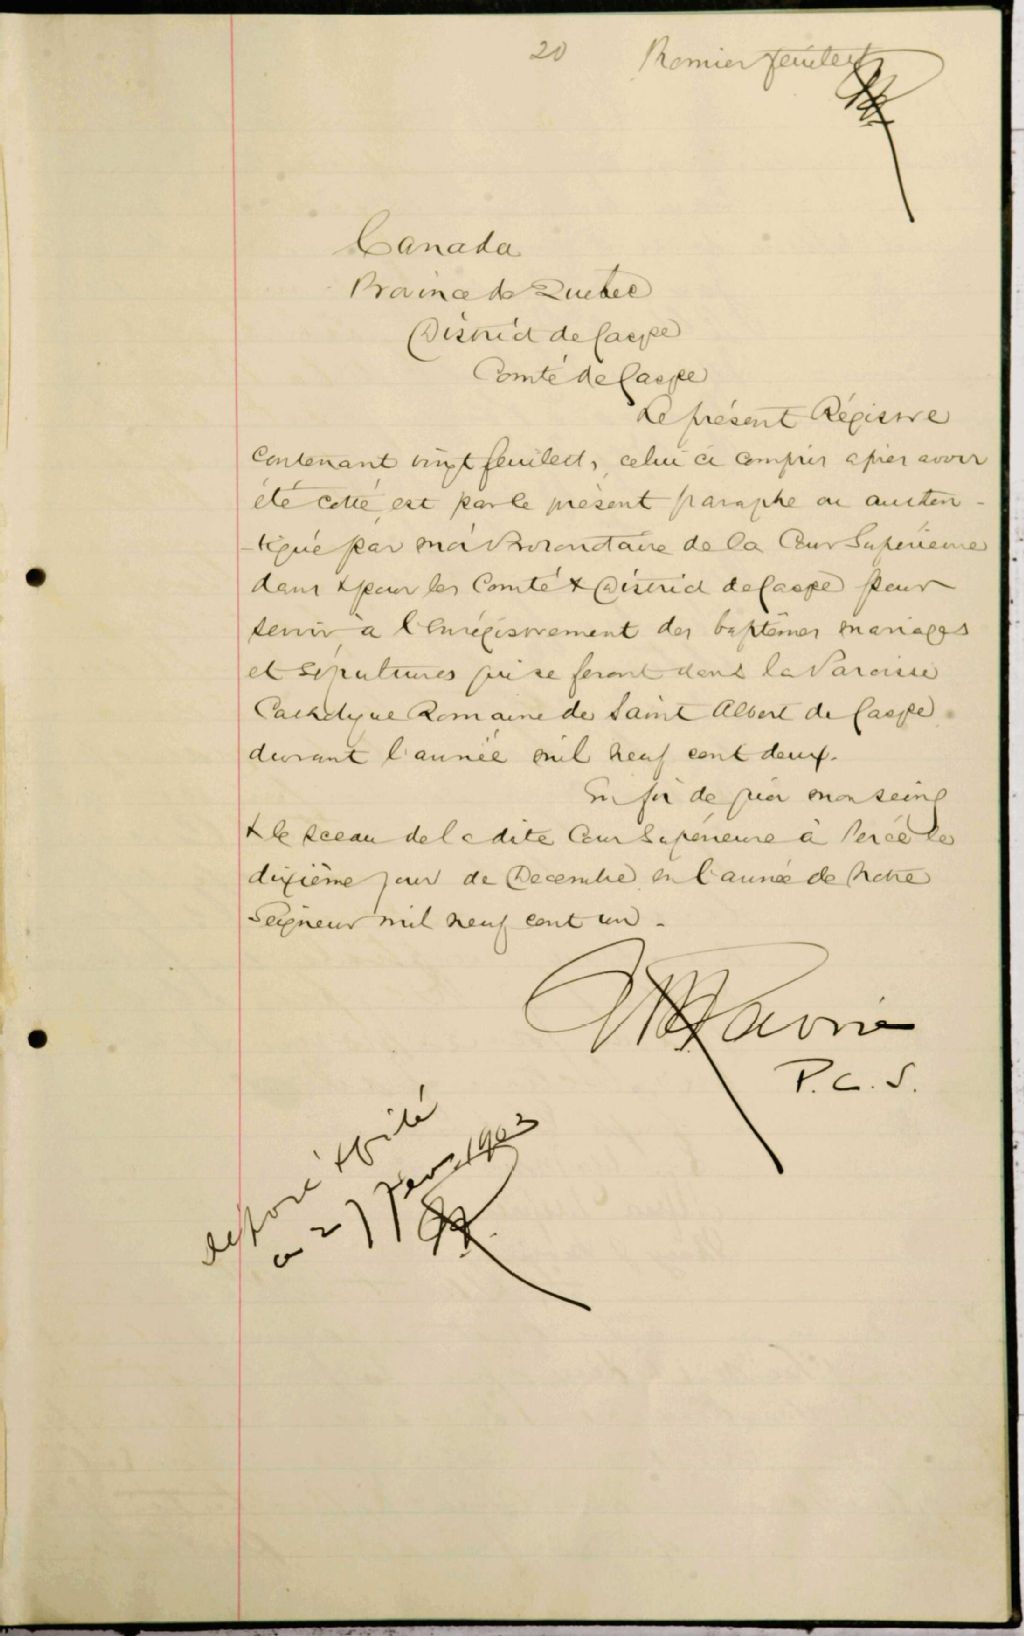 20 Premier feuillet
Canada
Province de Quebec
District de Gaspé
Comté de Gaspé
Le présent Régistre
contenant vingt feuillets, celui ci compris apres avoir
été cotté est par le présent paraphe ou authen-
-tiqué par moi Protonotaire de la Cour Supérieure
dans & pour les Comté & District de Gaspé pour
servir à l'Enrégistrement des baptêmes mariages
et sépultures qui se feront dans la Paroisse
Catholique Romaine de Saint Albert de Gaspé
durant l'année mil neuf cent deux.
En foi de quoi mon seing
& le sceau de la dite Cour Supérieure à Percé le
dixième jour de Decembre en l'année de Notre
Seigneur mil neuf cent un -
Lavoie
P.C.S.
déposé & filé
ce 27 Fev. 1903